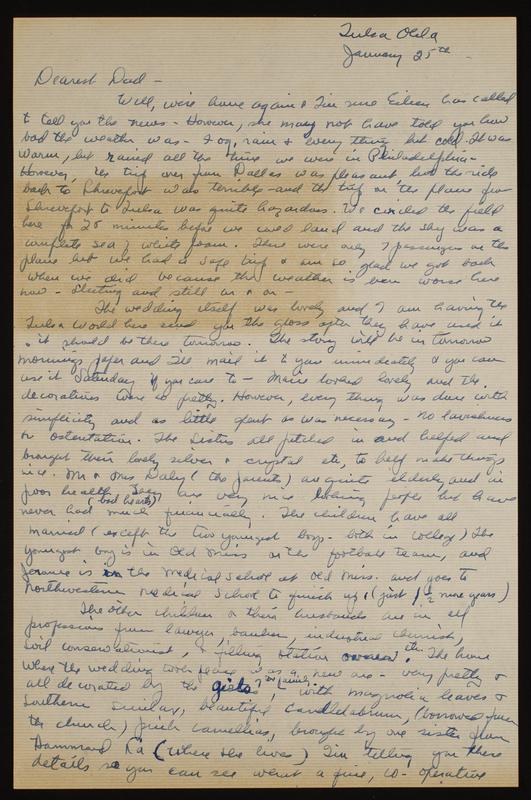 Tulsa Okla
January 25th -
Dearest Dad -
Well, we're home again & I'm sure Eileen has called
to tell you the news - However, she may not have told you how
bad the weather was - Fog, rain & every thing but cold. It was
warm, but rained all the time we were in Philadelphia -
However, the trip over from Dallas was pleasant, but the ride
back to Shreveport was terrible - and the trip on the plane from
Shreveport to Tulsa was quite hazardous. We circled the field
here for 25 minutes before we could land and the sky was a
complete sea of white foam. There were only 7 passengers on the
plane but we had a safe trip & am so glad we got back
when we did because the weather is even worse here
now - Sleeting and still on & on -
The wedding itself was lovely, and I am having the
Tulsa World here send you the gloss after they have used it
it should be there tomorrow. The story will be in tomorrow
mornings paper and I'll mail it to you immediately & you can
use it Saturday if you care to - Marie looked lovely and the
decorations were so pretty. However, every thing was done with
simplicity and as little spent as was necessary - no lavishness
or ostentation. The sisters all pitched in and helped and
brought their lovely silver & crystal etc, to help make things
nice. Mr & Mrs Daly (the parents) are quite elderly and in
poor health (bad hearts) They are very nice looking people but have
never had much financially. The children have all
married (except the two youngest boys - both in college) The
youngest boy is in Old Miss on the football team, and
Jerome is in the Medical School at Old Miss. and goes to
Northwestern Medical School to finish up, (just 1 1/2 more years)
The other children & their husbands are in all
professions from lawyer, banker, industrial chemist,
soil conservationist, & filling station owner etc. The home
where the wedding took place was a new one - very pretty &
all decorated by the girls in family, with magnolia leaves &
Southern smilax, beautiful candelabrum, (borrowed from
the church) pink camellias, brought by one sister from
Hammond La (where she lives) I'm telling you these
details so you can see what a fine, co-operative